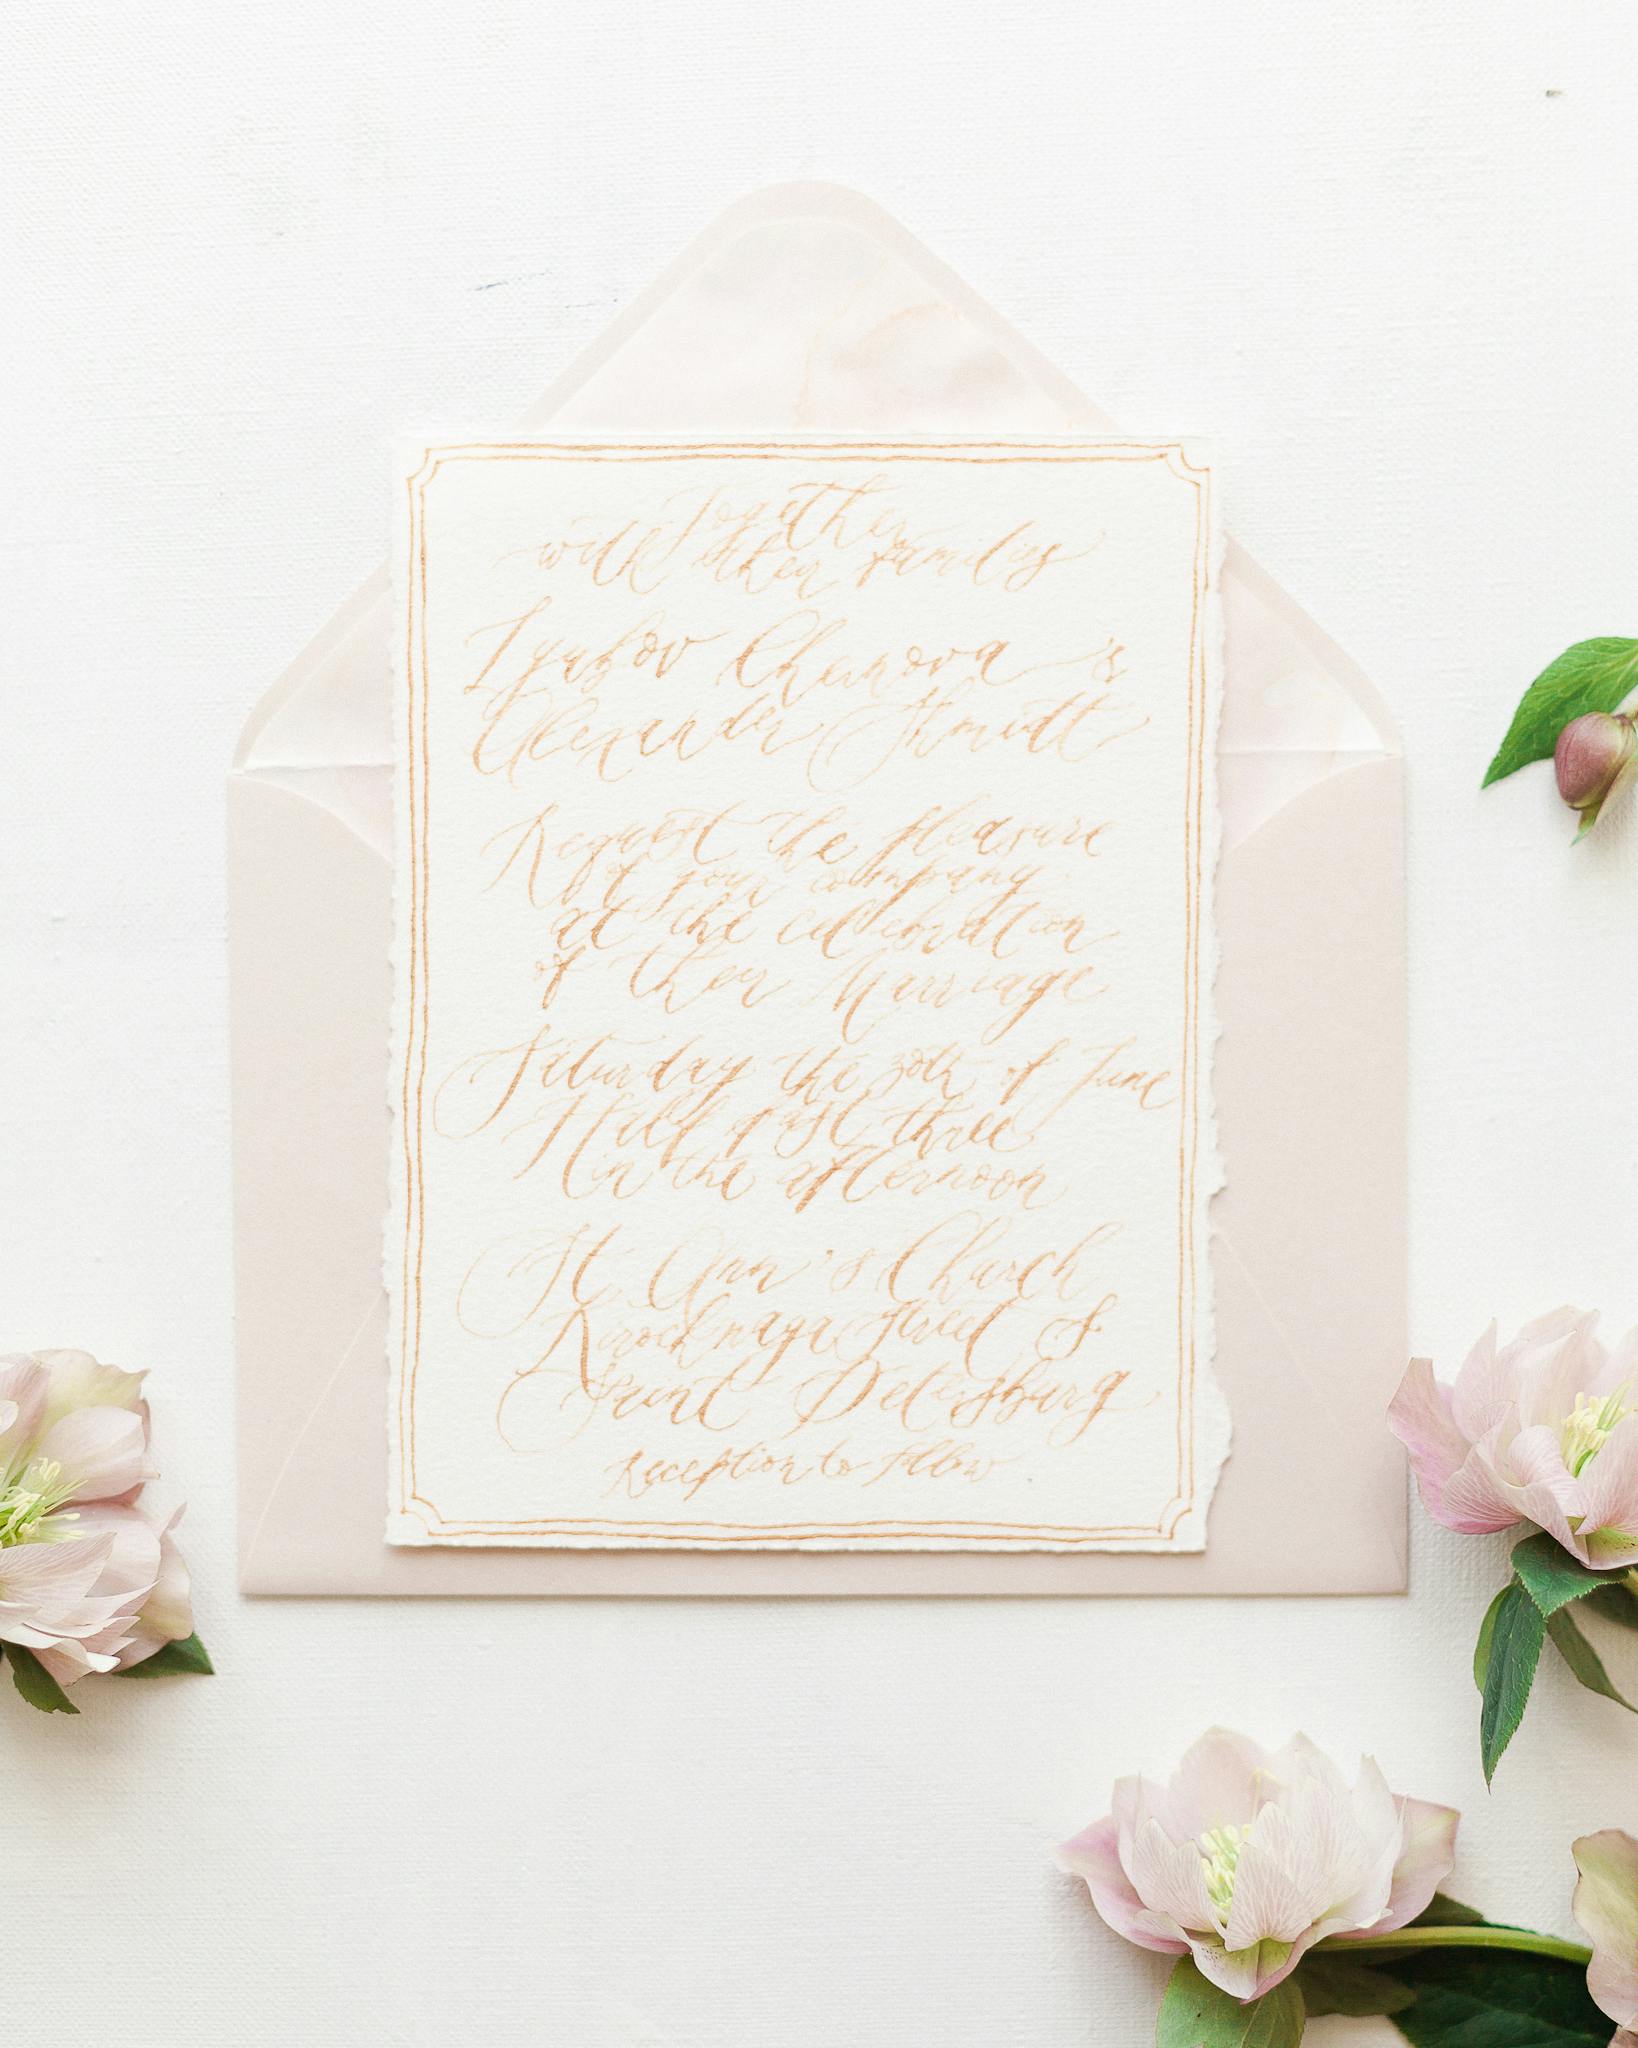 Together
with their families
Lyubov Chernova &
Alexander Shmidt
Request the pleasure
of your company
at the celebration
of their Marriage
Saturday the 30th of June
Half past three
in the afternoon
St. Ann's Church
Street 8
Saint Petersburg
Reception to follow